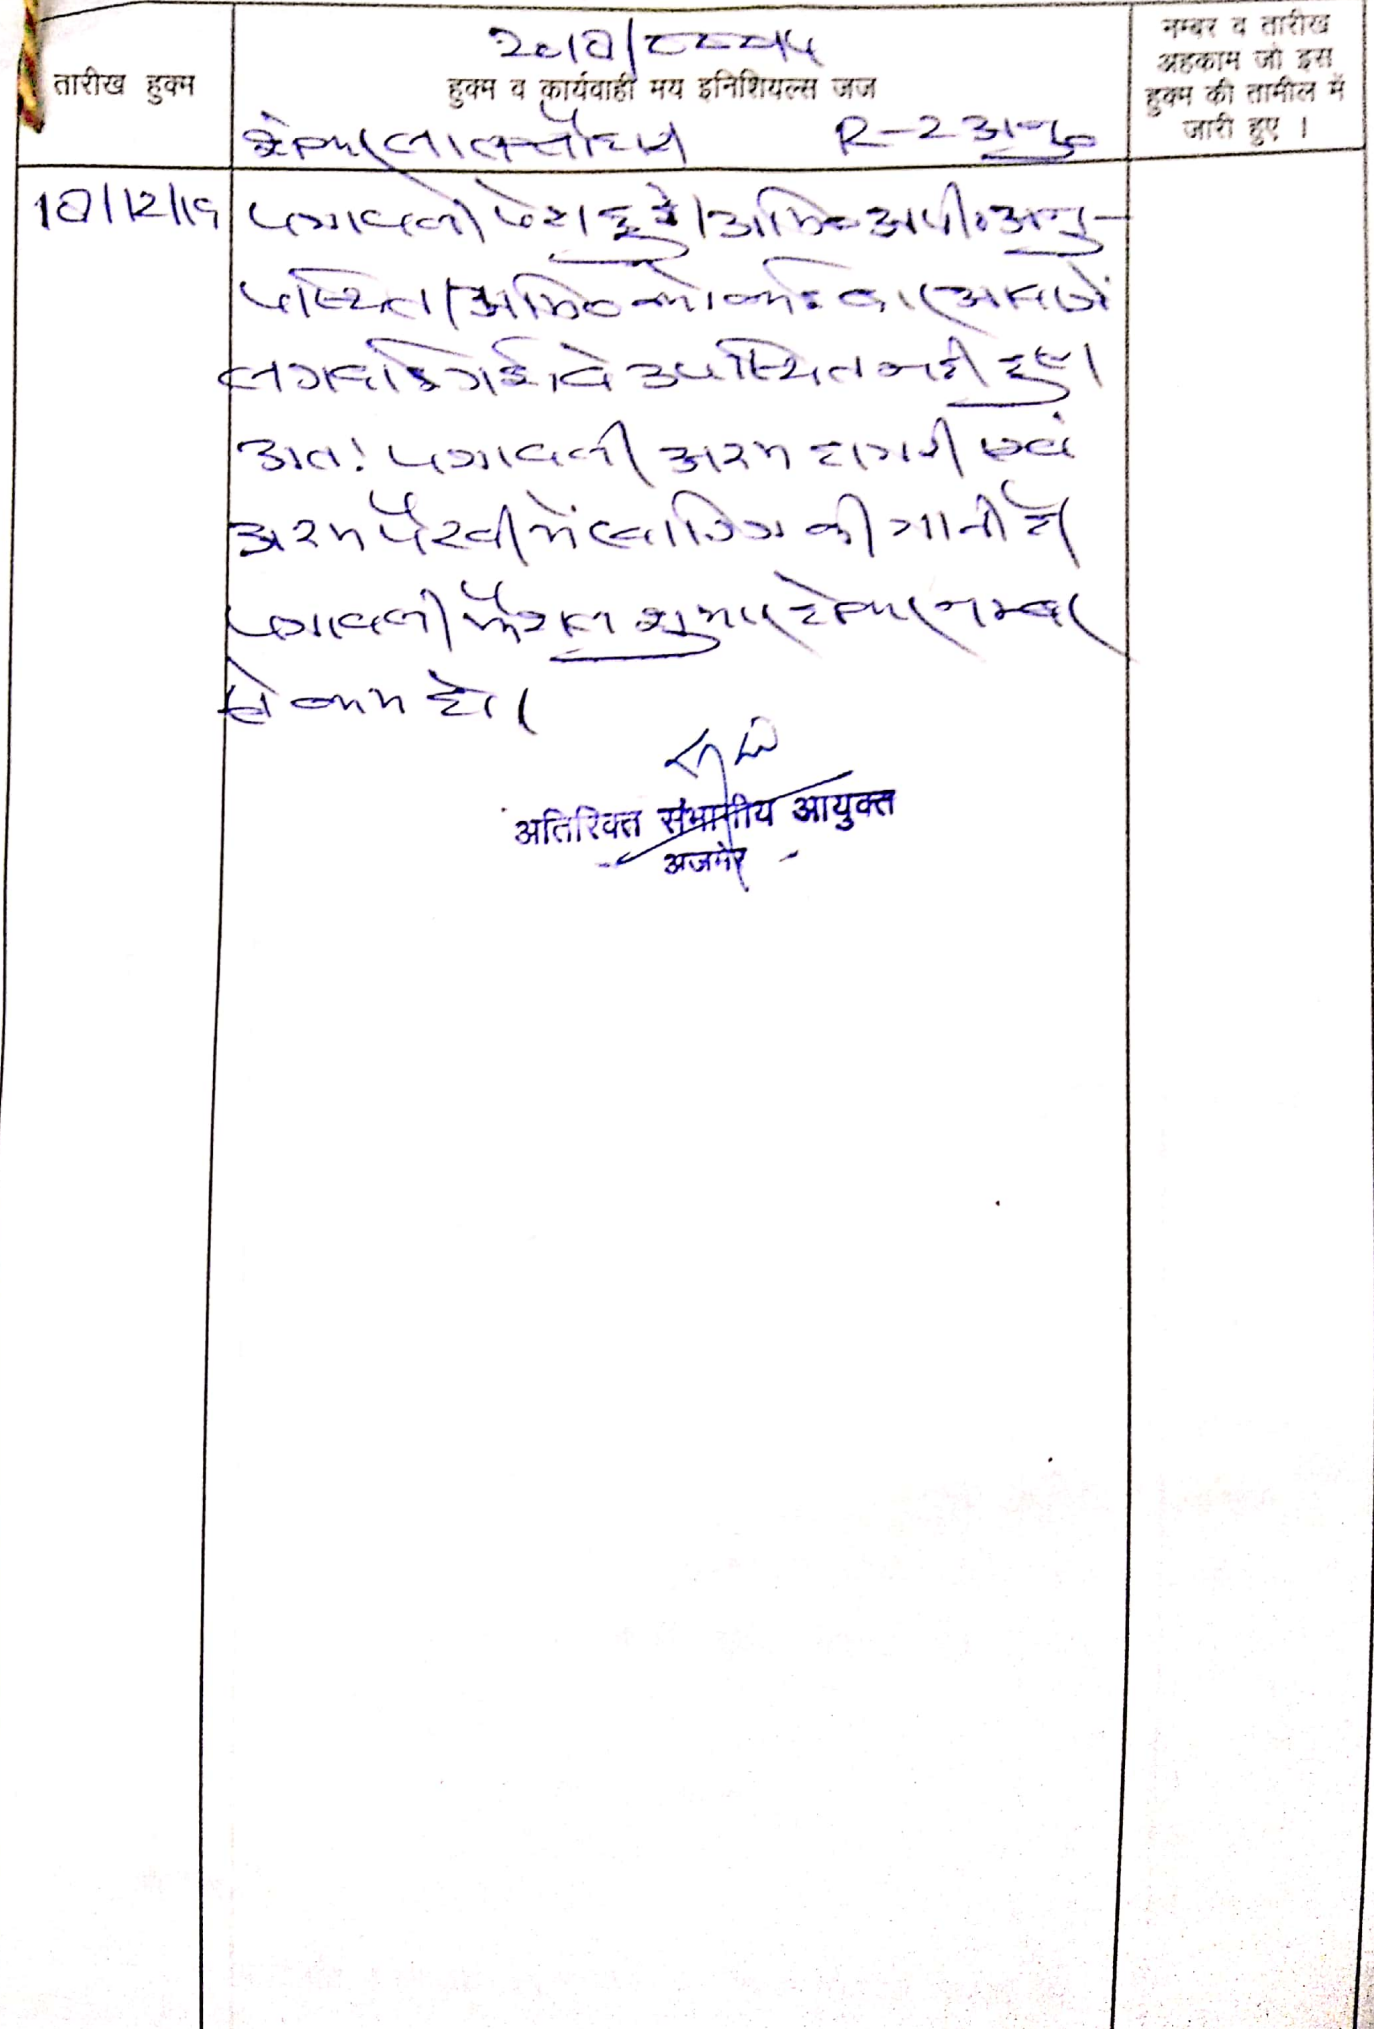 तारीख हुक्म
हुक्म व कार्यवाही मय इनिशियल्स जज
नम्बर व तारीख
अहकाम जो इस
हुक्म की तामील में
जारी हुए ।
R-2 अनु०
18/12/19 पत्रावली पेश हुई। अभि० अपी० अनु-
पस्थित। अभि० को कई बार आवाजें
लगवाई गई, वे उपस्थित नहीं हुए।
अतः पत्रावली अदम हाजरी एवं
अदम पैरवी में खारिज की जाती है।
पत्रावली फैसल शुमार होकर नम्बर
से कम हो।
अतिरिक्त संभागीय आयुक्त
अजमेर